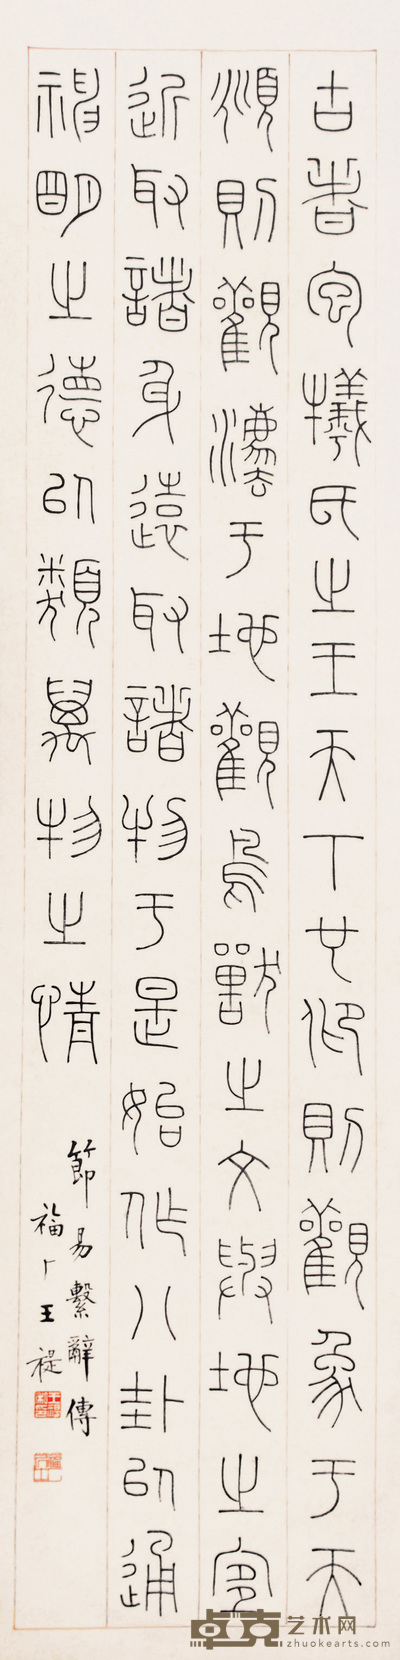 古者宓犧氏之王天下也仰則觀象于天
頫則觀灋于地觀鳥獸之文與地之宜
近取諸身遠取諸物于是始作八卦以通
神朙之德以類萬物之情
節易繫辭傳
福厂王禔
卓克艺术网
zhuokearts.com